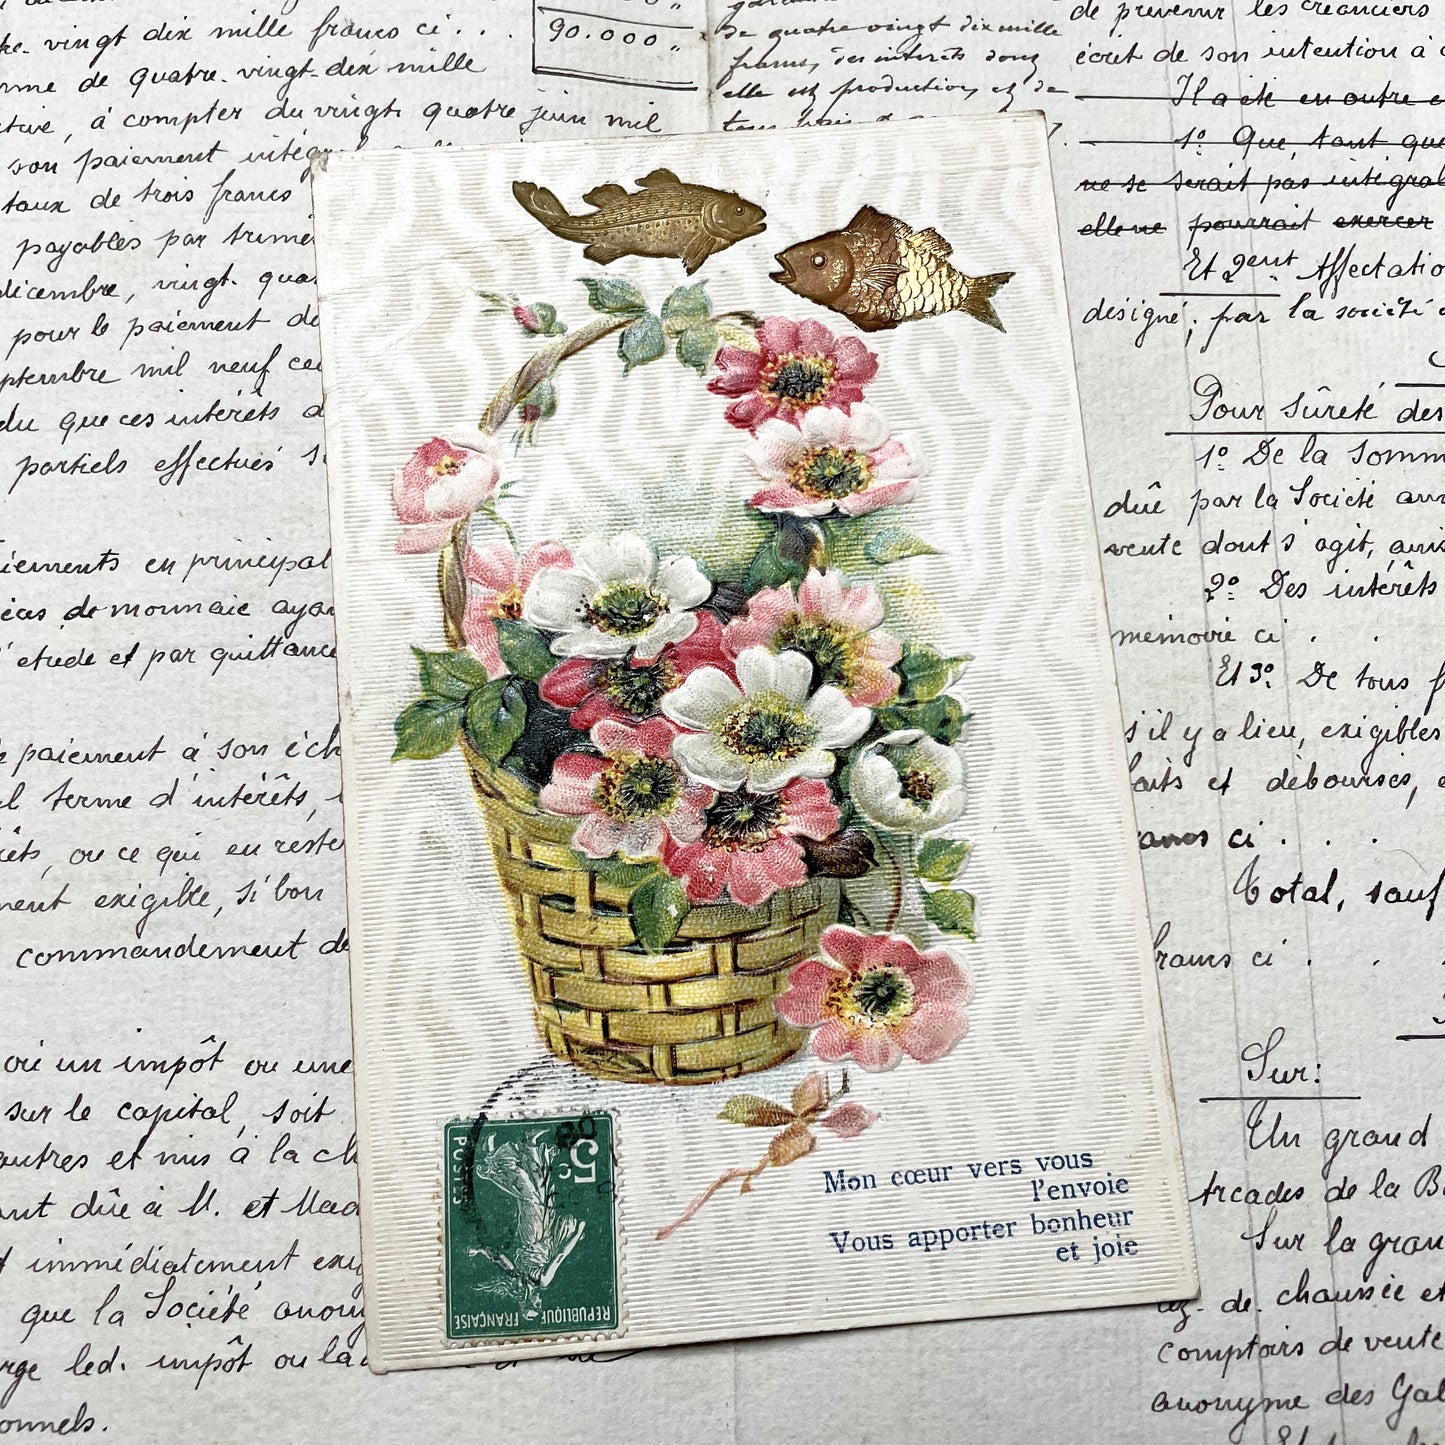 vingt dix mille francs ci . . .
90.000 "
de quatre-vingt-dix mille
, à compter du vingt quatre juin mil
son paiement
taux de trois francs
payables par
décembre, vingt.
pour le paiement
mil neuf
du que ces intérêts
partiels effectués
en principal
de monnaie
et par quittance
paiement à son
terme d'intérêts,
, ou ce qui en reste
exigible, si bon
commandement
ou un impôt ou une
sur le capital, soit
et mis à la
dûe à M. et
immédiatement
que la Société
led. impôt ou la
de quatre vingt dix mille
francs, des intérêts dont
elle est productive, et de
de prévenir les créanciers
écrit de son intention à
Il a été en outre
1º Que, tant que
ne se serait pas
elle ne pourrait exercer
Et 2ent Affectation
désigné, par la société
Pour sûreté des
1º De la somme
dûe par la Société
vente dont s'agit,
2º Des intérêts
mémoire ci . .
Et 3º De tous
s'il y a lieu, exigibles
et déboursés,
francs ci . . .
Total, sauf
francs ci . .
Sur:
Un grand
Arcades de la
Sur la
de chaussée et
comptoirs de vente
anonyme des
POSTES
5 c
REPUBLIQUE
FRANÇAISE
Mon cœur vers vous
l'envoie
Vous apporter bonheur
et joie